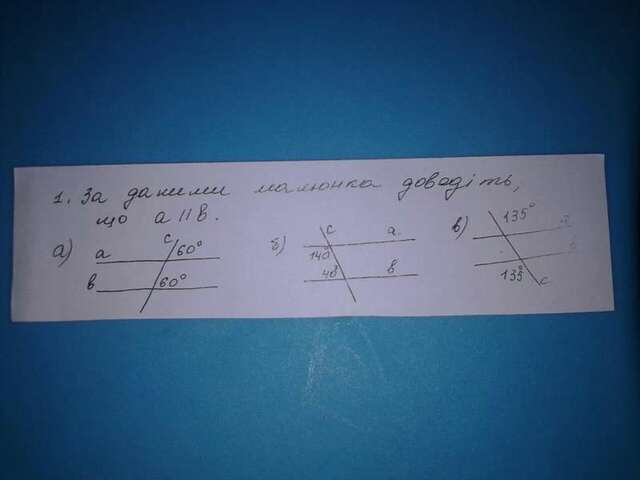 1. За даними малюнка доведіть,
що а || в.
а) а с 60° в 60°
б) с а 140° 40 в
в) 135° а в 135° с